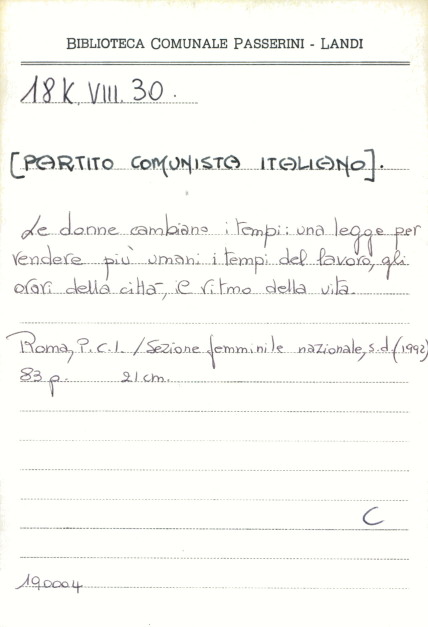 BIBLIOTECA COMUNALE PASSERINI - LANDI
18K. VIII. 30.
[PARTITO COMUNISTA ITALIANO].
Le donne cambiano i tempi: una legge per
rendere più umani i tempi del lavoro, gli
orari della città, il ritmo della vita.
Roma, P.C.I. / Sezione femminile nazionale, s.d. (1992)
83 p. 21 cm.
C
190004